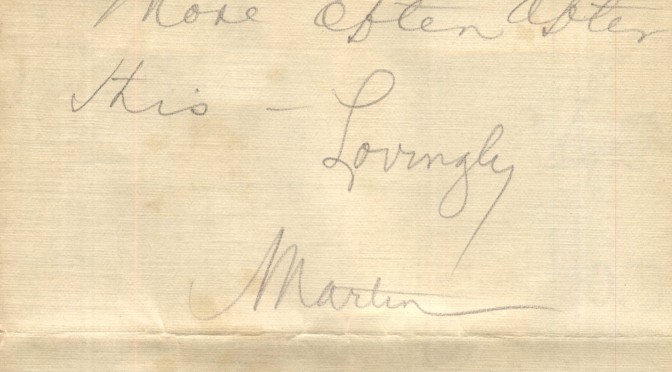 More often after
this —
Lovingly
Martin